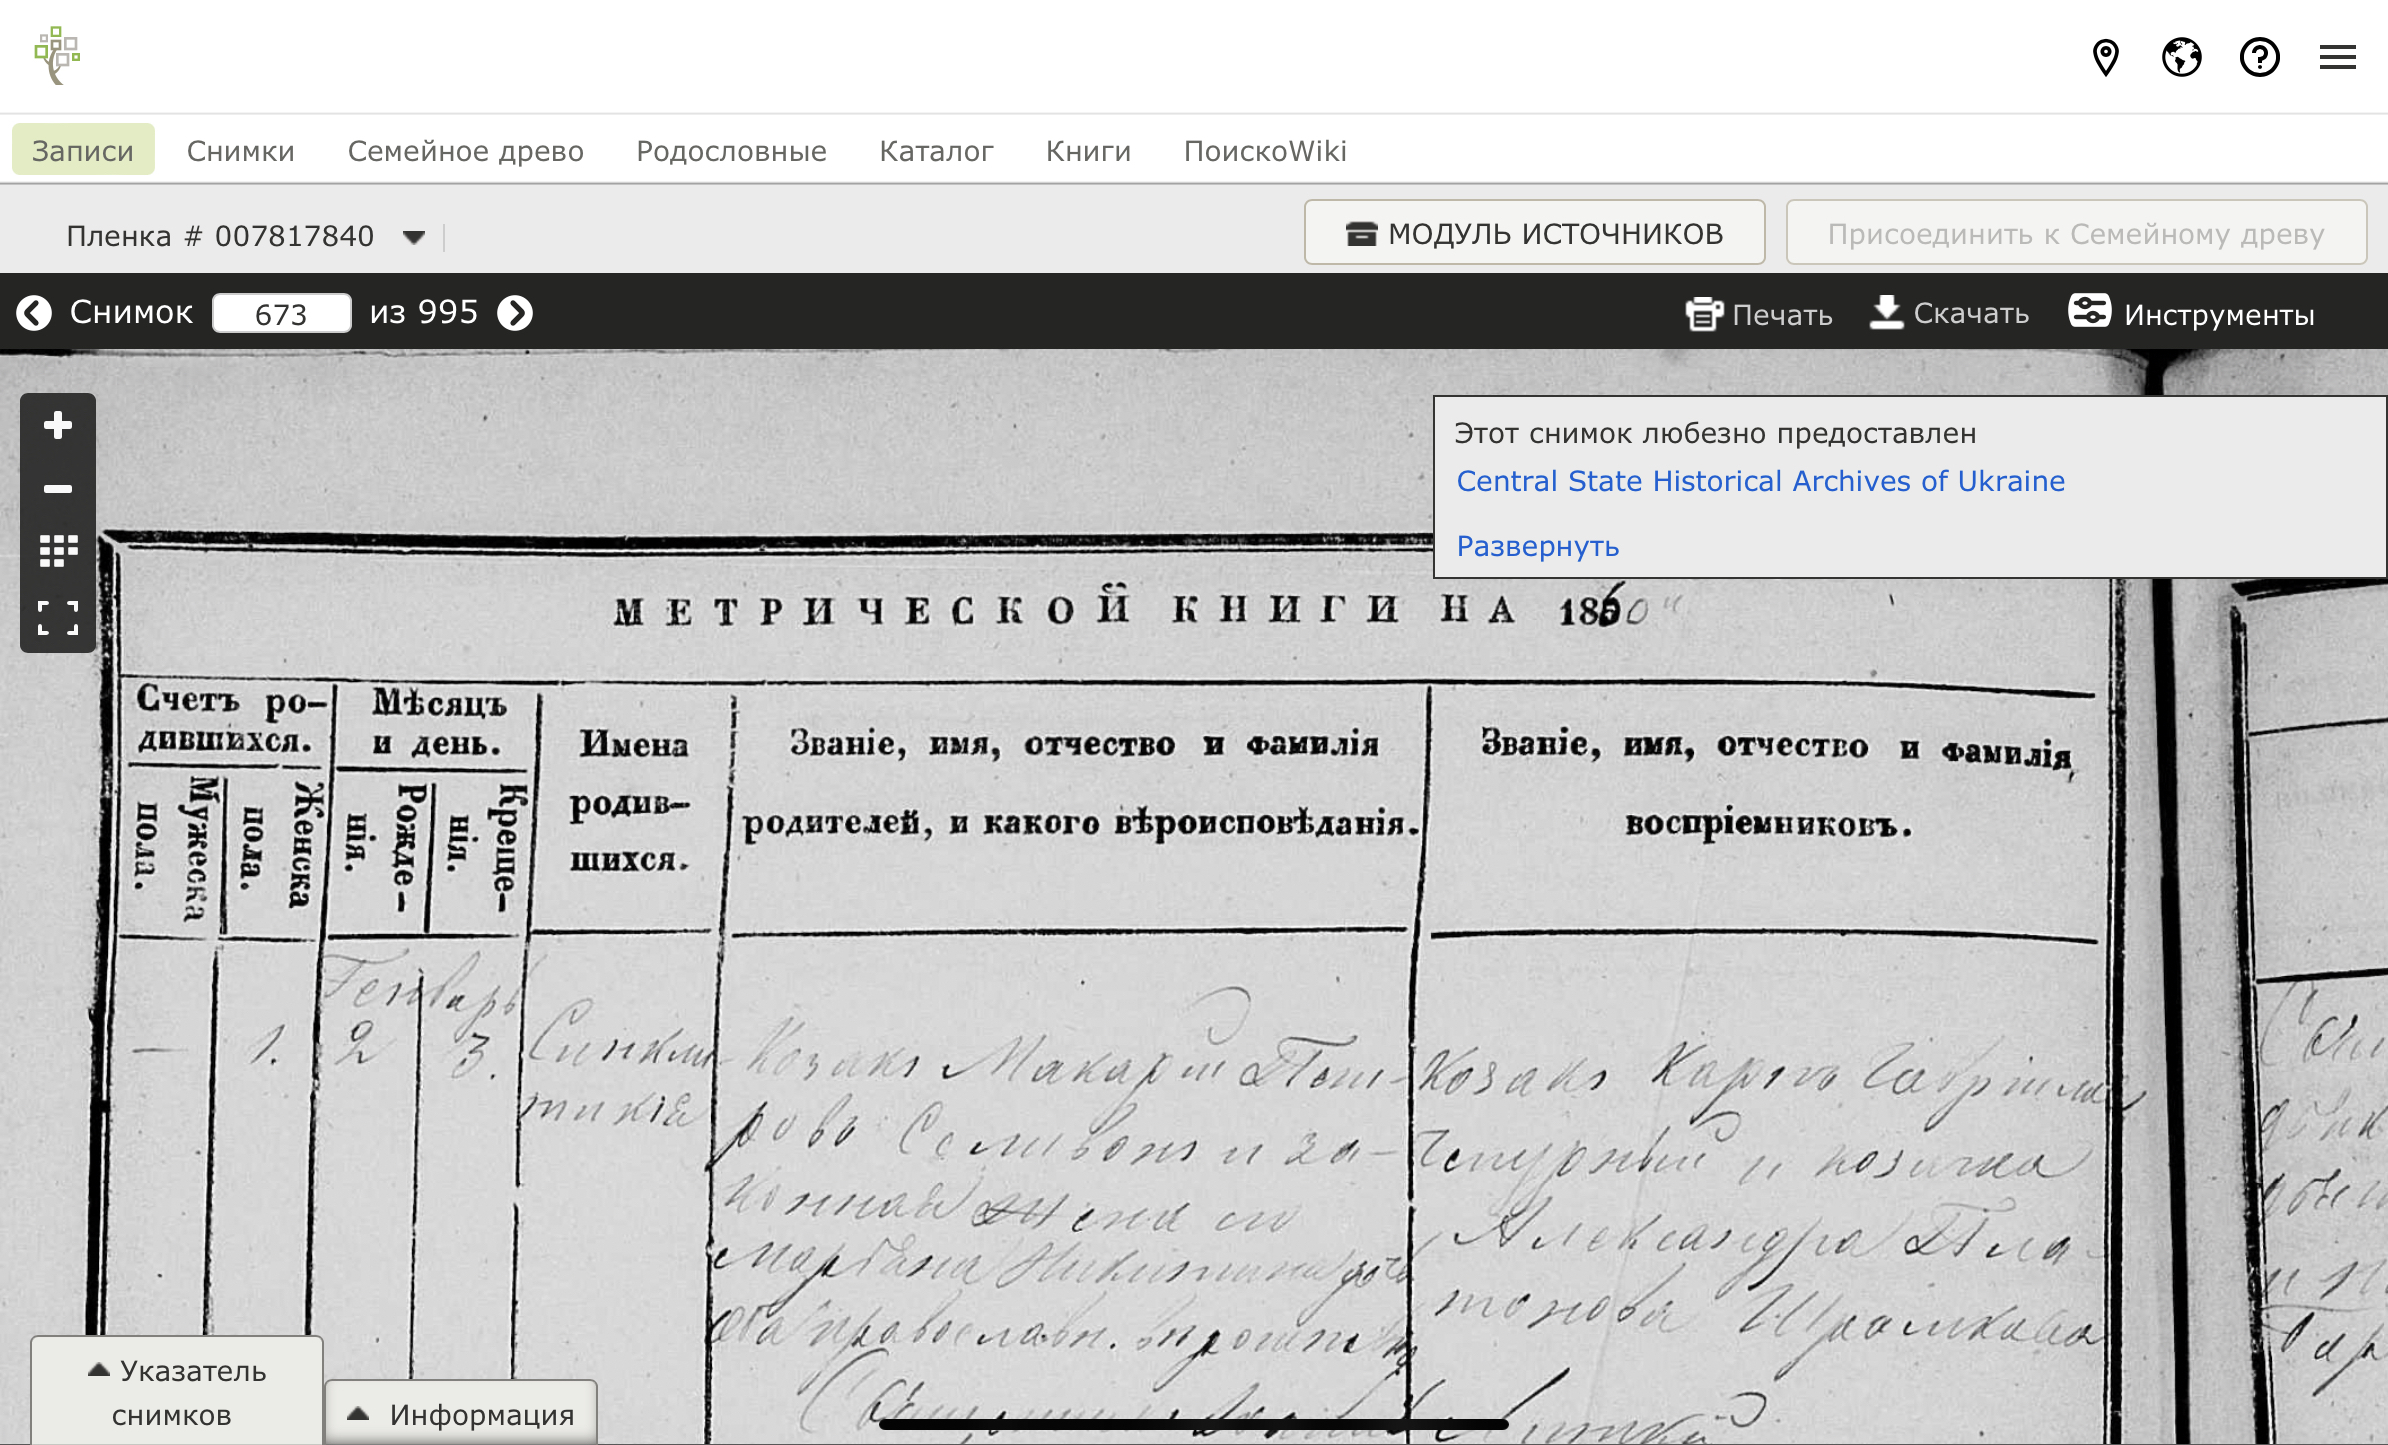 Записи Снимки Семейное древо Родословные Каталог Книги ПоискоWiki
Пленка # 007817840
МОДУЛЬ ИСТОЧНИКОВ
Присоединить к Семейному древу
Снимок 673 из 995
Печать Скачать Инструменты
Этот снимок любезно предоставлен
Central State Historical Archives of Ukraine
Развернуть
МЕТРИЧЕСКОЙ КНИГИ НА 1860
Счетъ ро-
дившихся.
Мужеска
пола.
Женска
пола.
Мѣсяцъ
и день.
Рожде-
нія.
Креще-
нія.
Имена
родив-
шихся.
Званіе, имя, отчество и фамилія
родителей, и какого вѣроисповѣданія.
Званіе, имя, отчество и фамилія
воспріемниковъ.
Генварь
— 1. 2 3.
Синкли-
тикія
Козакъ Макарій Пет-
ровъ Селивонъ и за-
конная жена его
Марѳа Никитина
оба православн.
Козакъ Карпъ Гавріиловъ
Чепурный и козачка
Александра Пла-
тонова
Указатель
снимков
Информация